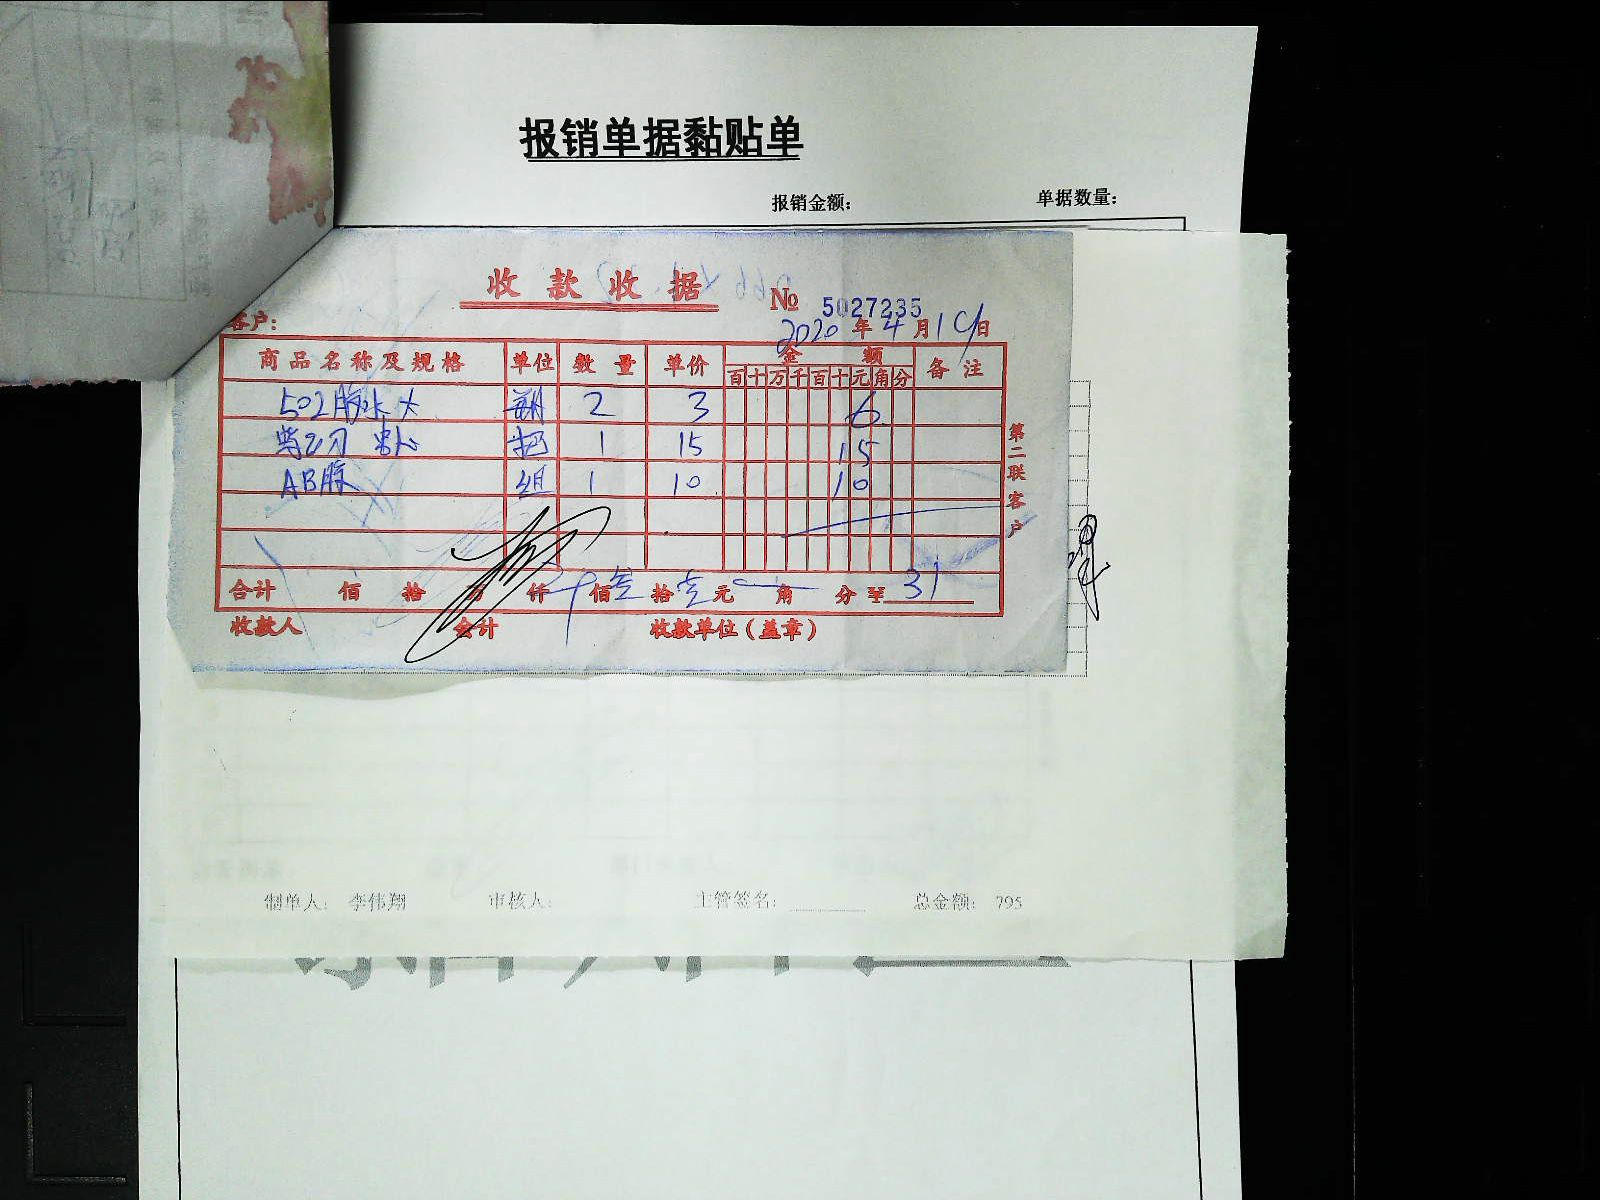 报销单据黏贴单
报销金额： 单据数量：
收款收据 № 5027235
客户： 2020年4月19日
商品名称及规格 单位 数量 单价 金额 备注
百 十 万 千 百 十 元 角 分
502胶水大 2 3 6
把 1 15 15
AB胶 组 1 10 10
第二联客户
合计 佰 拾 万 仟 佰 叁 拾 壹 元 角 分 ¥ 31
收款人 会计 收款单位（盖章）
制单人： 李伟翔 审核人： 主管签名： 总金额： 795